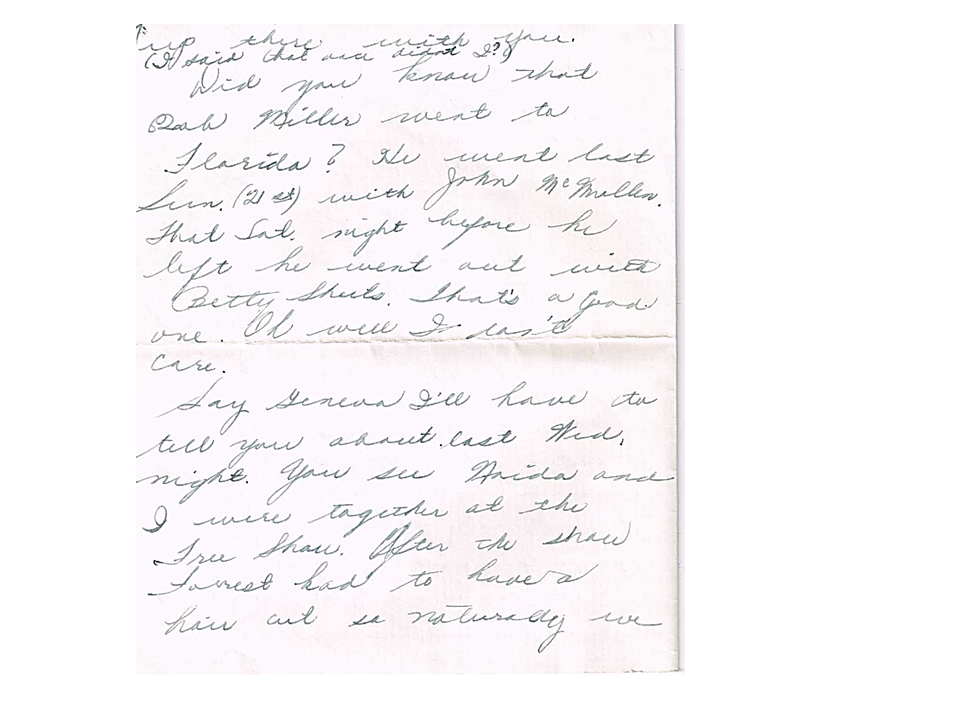 up there with you.
(I said that once didn't I?)
Did you know that
Bob Miller went to
Florida? He went last
Sun. (21st) with John McMillen.
That Sat. night before he
left he went out with
Betty Sheets. That's a good
one. Oh well I can't
care.
Say Geneva I'll have to
tell you about last Wed.
night. You see and
I were together at the
Free Show. After the show
Forrest had to have a
hair cut so naturally we